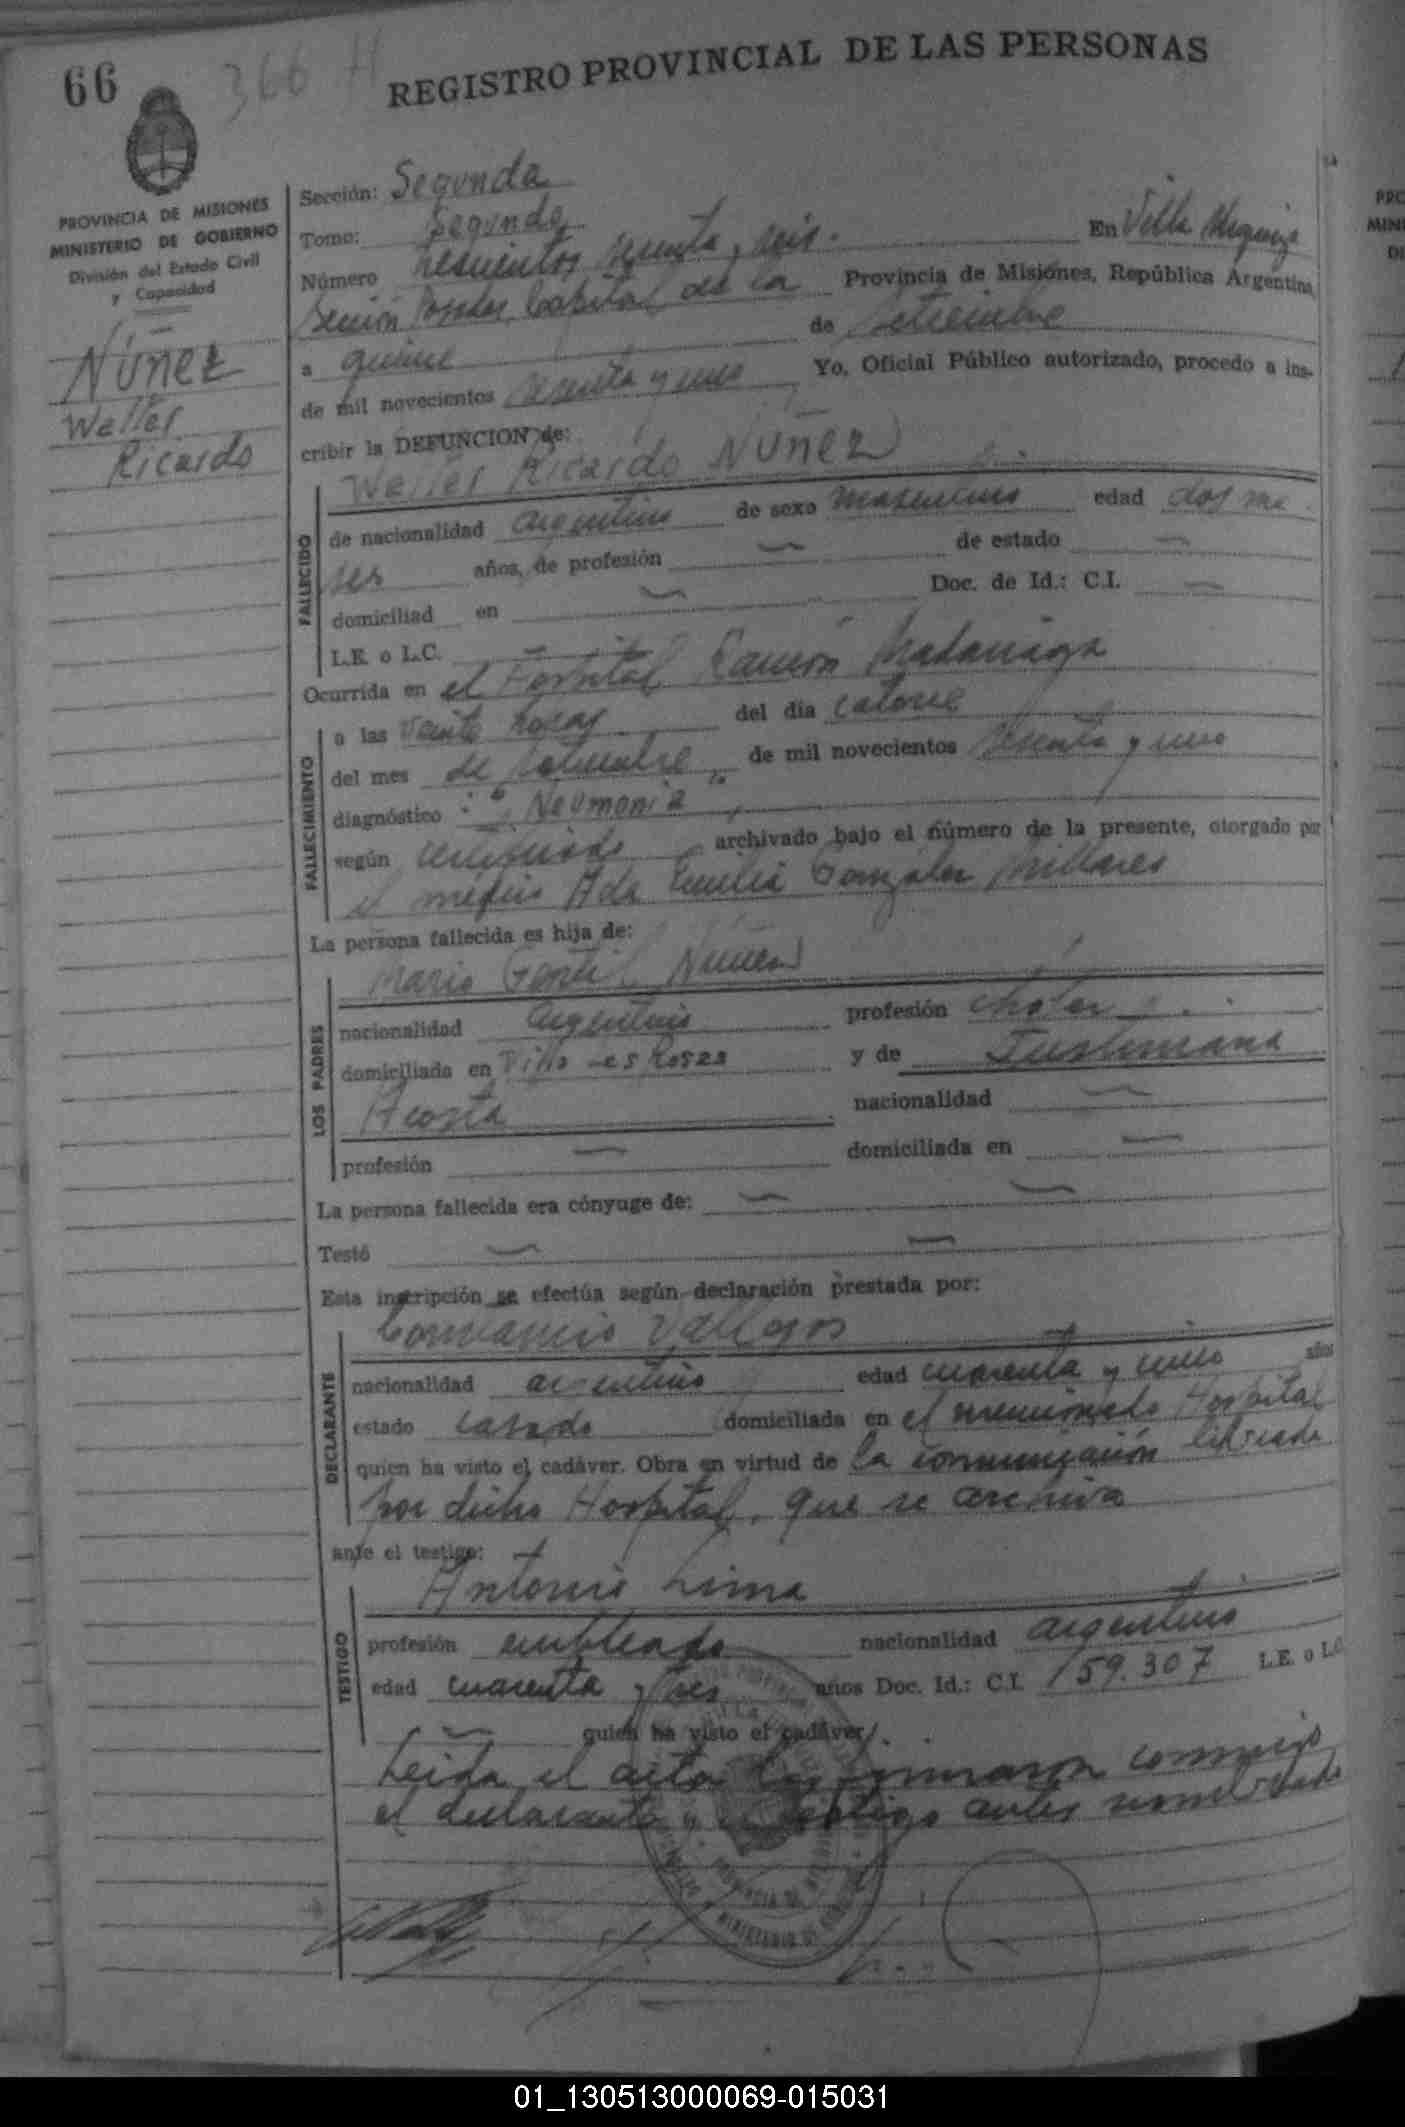 66
366 H
REGISTRO PROVINCIAL DE LAS PERSONAS
PROVINCIA DE MISIONES
MINISTERIO DE GOBIERNO
División del Estado Civil
y Capacidad
NÚÑEZ
Walter
Ricardo
Sección: Segunda
Tomo: Segundo
Número trescientos sesenta y seis. En Villa Urquiza
Sección Posadas Capital de la Provincia de Misiones, República Argentina
a quince de setiembre
de mil novecientos sesenta y uno Yo, Oficial Público autorizado, procedo a ins-
cribir la DEFUNCION de:
Walter Ricardo NÚÑEZ
FALLECIDO
de nacionalidad argentino de sexo masculino edad dos me
ses años, de profesión — de estado —
domiciliad en — Doc. de Id.: C.I. —
L.E. o L.C. —
Ocurrida en el Hospital Ramón Madariaga
FALLECIMIENTO
a las veinte horas del día catorce
del mes de setiembre de mil novecientos sesenta y uno
diagnóstico : " Neumonia "
según certificado archivado bajo el número de la presente, otorgado por
el médico Ada Emilia González Millares
La persona fallecida es hija de:
LOS PADRES
Mario Gentil Núñez
nacionalidad argentino profesión chofer
domiciliada en Villa Las Rosas y de Justiniana
Acosta nacionalidad —
profesión — domiciliada en —
La persona fallecida era cónyuge de: — —
Testó — —
Esta inscripción se efectúa según declaración prestada por:
DECLARANTE
Constancio Vallejos
nacionalidad argentino edad cuarenta y uno años
estado casado domiciliada en el mencionado Hospital
quien ha visto el cadáver. Obra en virtud de la comunicación librada
por dicho Hospital, que se archiva
ante el testigo:
TESTIGO
Antonio Lima
profesión empleado nacionalidad argentino
edad cuarenta y tres años Doc. Id.: C.I. 159.307 L.E. o L.C.
— quien ha visto el cadáver.
Leida el acta la firmaron conmigo
el declarante y el testigo antes nombrado
01_130513000069-015031